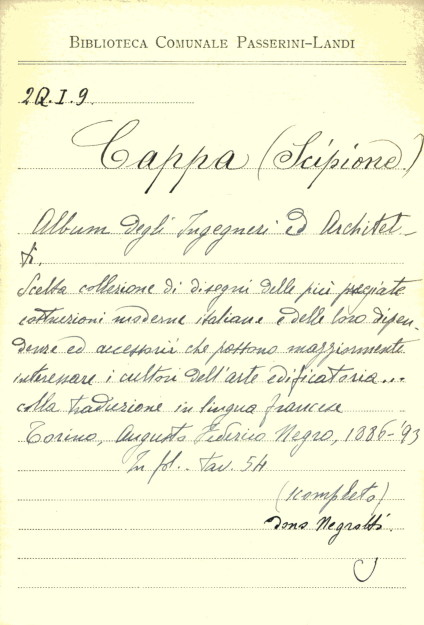 BIBLIOTECA COMUNALE PASSERINI-LANDI
2Q.I.9.
Cappa (Scipione)
Album degli Ingegneri ed Architet-
ti.
Scelta collezione di disegni delle più pregiate
costruzioni moderne italiane e delle loro dipen-
denze ed accessorii che possono maggiormente
interessare i cultori dell'arte edificatoria...
colla traduzione in lingua francese
Torino, Augusto Federico Negro, 1886-'93
In fol.. tav. 54
(scompleto)
Dono Negrotti.